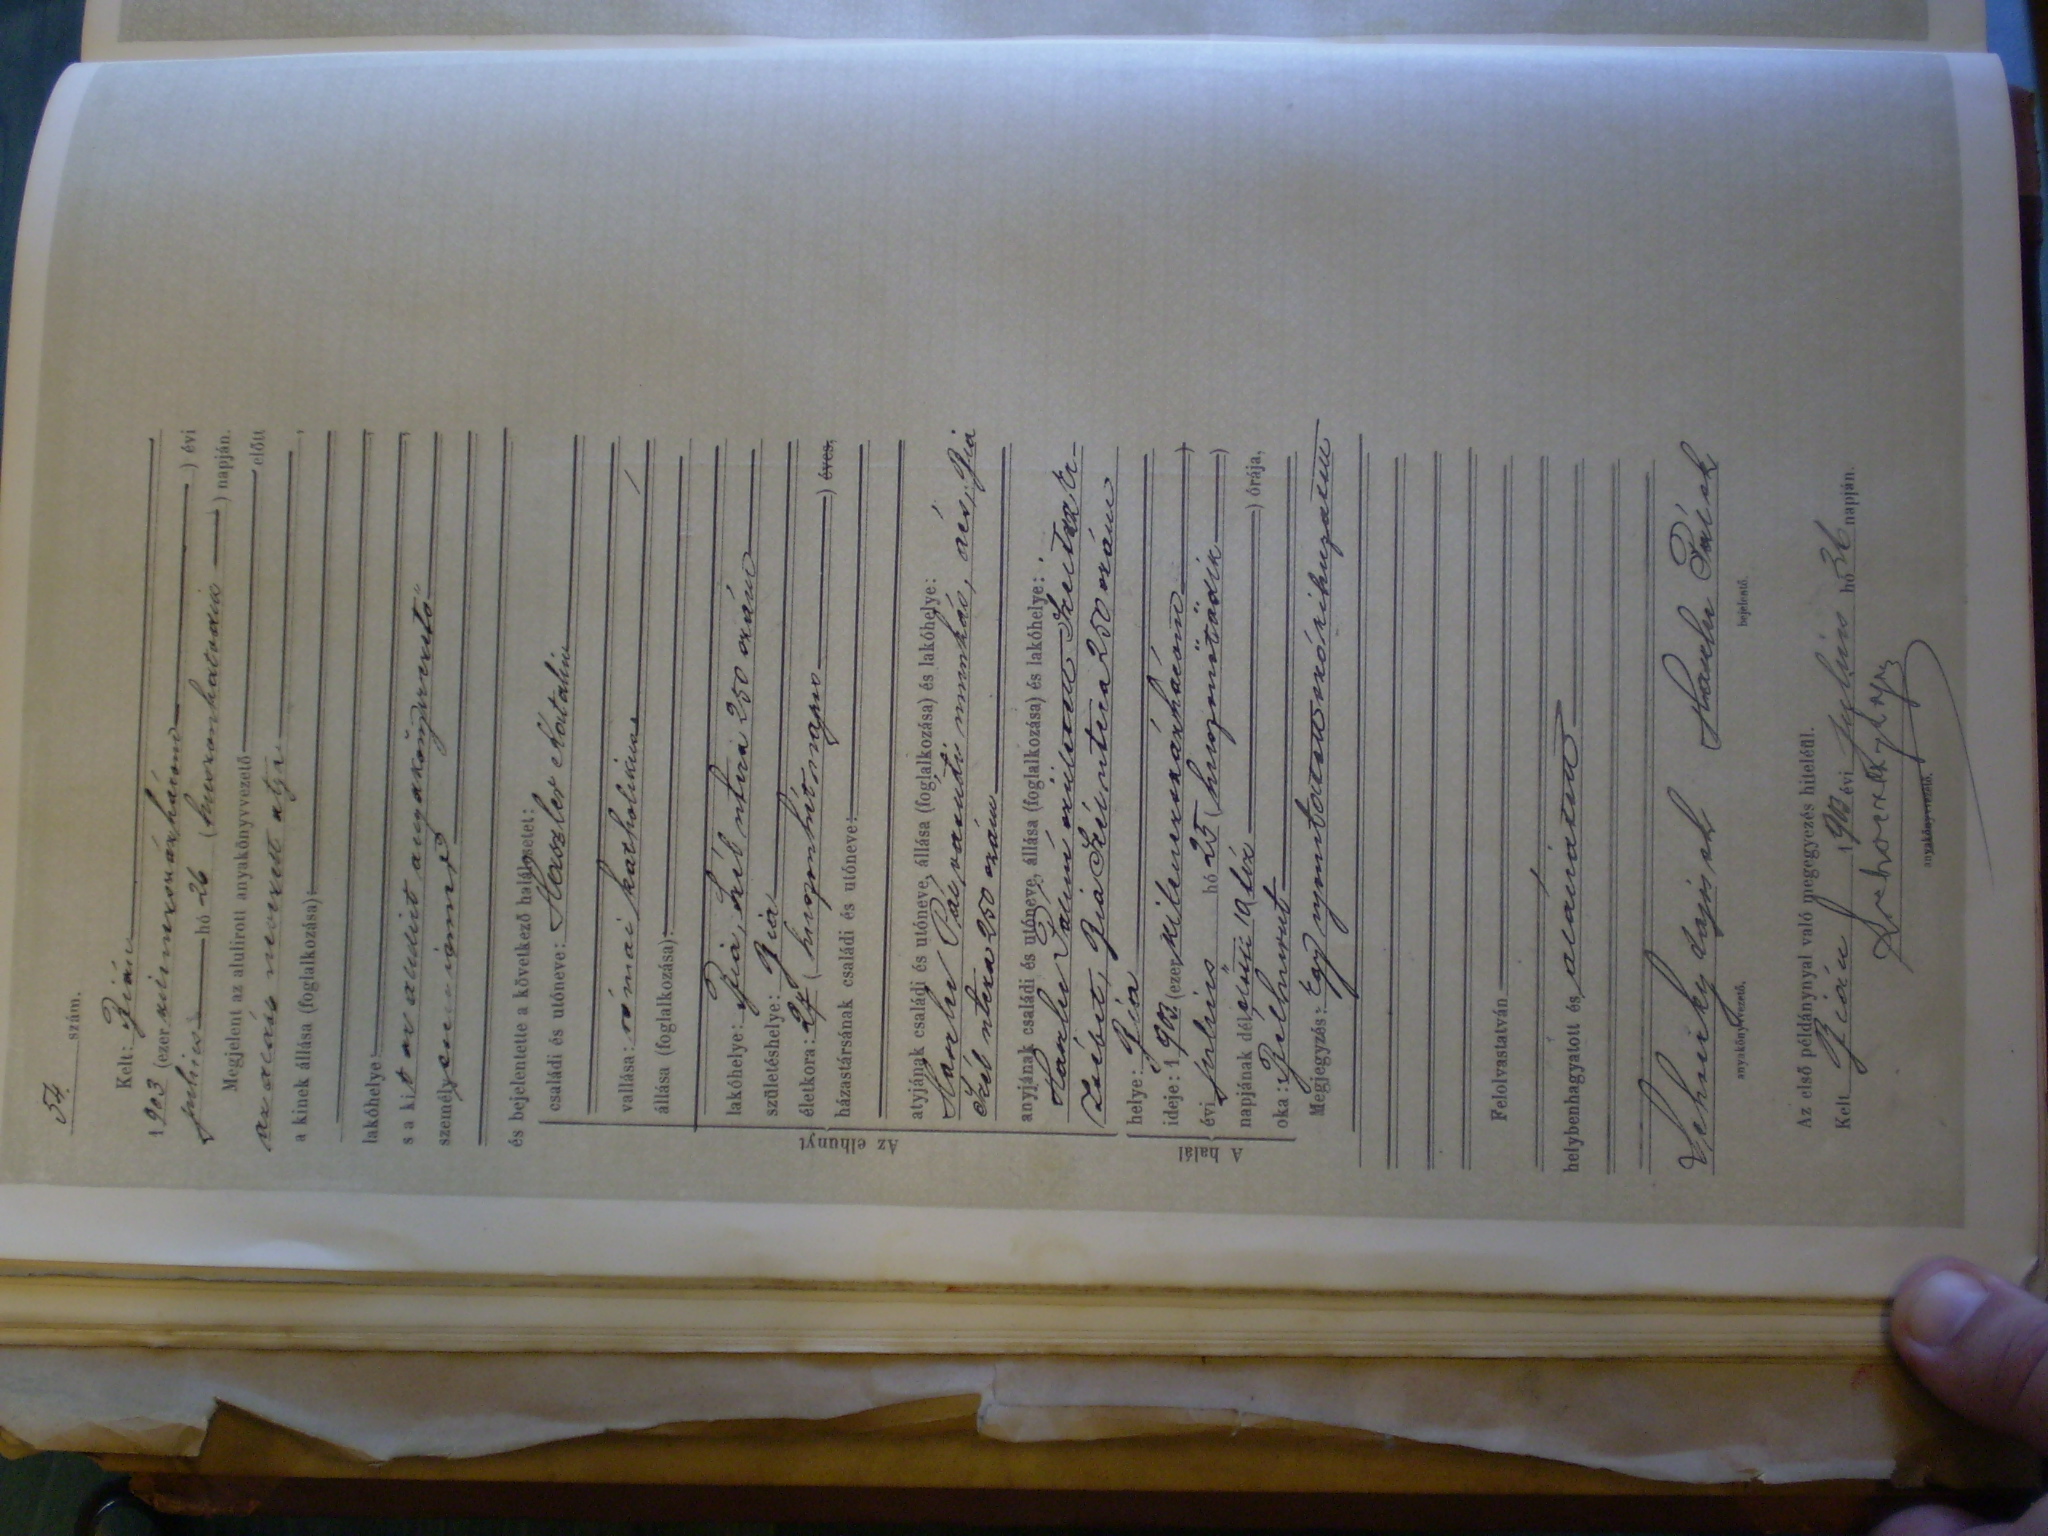 54. szám.
Kelt: Bián
1903 (ezer kilencszázhárom) évi
julius hó 26 (huszonhatodik) napján.
Megjelent az alulirott anyakönyvvezető előtt
az alulis nevezett atyja,
a kinek állása (foglalkozása):
lakóhelye:
s a kit az aludirt anyakönyvvezető
személyesen ismer
és bejelentette a következő halálesetet:
Az elhunyt
családi és utóneve: Haszler Katalin
vallása: római katholikus
állása (foglalkozása):
lakóhelye: Bia, Szél utcza 250 szám
születéshelye: Bia
életkora: 27 (huszonhét napos) éves,
házastársának családi és utóneve:
atyjának családi és utóneve, állása (foglalkozása) és lakóhelye:
Pál, vasuti munkás, ács, Bia
Szél utcza 250 szám
anyjának családi és utóneve, állása (foglalkozása) és lakóhelye:
született
Bia Szél utcza 250 szám
A halál
helye: Bia
ideje: 1903 (ezer kilenczszázhárom)
évi julius hó 25 (huszonötödik)
napjának délelőtti 10 (tíz) órája,
oka: Bélhurut
Megjegyzés: Egy nyomtatott szó kihuzatott
Felolvastatván,
helybenhagyatott és aláiratott
Pál sk
anyakönyvvezető, bejelentő.
Az első példánynyal való megegyezés hiteléül.
Kelt Bián 1903 évi julius hó napján.
anyakönyvvezető.